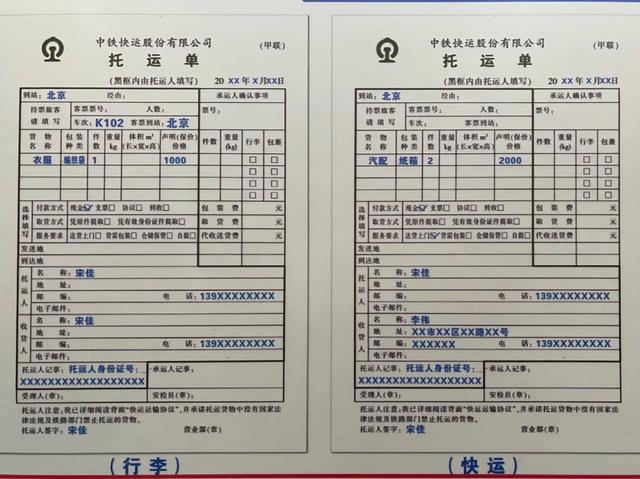 中铁快运股份有限公司
(甲联)
托运单
(黑框内由托运人填写) 20 XX 年 X 月XX日
到站: 北京 经由: 承运人确认事项
持票旅客 客票票号: 人数: 票号:
请填写 车次: K102 客票到站: 北京
货物名称 包装种类 件数 重量kg 体积m³(长×宽×高) 声明(保价)价格 件数 重量(kg) 行李 包裹
衣服 编织袋 1 1000 □ □
□ □
□ □
□ □
选择填写 付款方式 现金☑ 支票□ 协议□ 到收□ 包装费 元
取货方式 凭原件提取□ 凭有效身份证件提取□ 取货费 元
服务要求 送货上门□ 货需包装□ 仓储保管□ 自提□ 代收送货费 元
发送地
到达地
托运人 名称: 宋佳
地址:
邮编: 电话: 139XXXXXXXX
电子邮件:
收货人 名称: 宋佳
地址:
邮编: 电话: 139XXXXXXXX
电子邮件:
托运人记事: 托运人身份证号: 承运人记事:
XXXXXXXXXXXXXXXXXX
受理人(章): 安检员(章):
托运人注意:我已详细阅读背面“快运运输协议”,并承诺托运货物中没有国家法
律法规及铁路部门禁止托运的货物。
托运人签字: 宋佳 营业部(章)
(行李)
中铁快运股份有限公司
(甲联)
托运单
(黑框内由托运人填写) 20 XX 年 X 月XX日
到站: 北京 经由: 承运人确认事项
持票旅客 客票票号: 人数: 票号:
请填写 车次: 客票到站:
货物名称 包装种类 件数 重量kg 体积m³(长×宽×高) 声明(保价)价格 件数 重量(kg) 行李 包裹
汽配 纸箱 2 2000 □ □
□ □
□ □
□ □
选择填写 付款方式 现金☑ 支票□ 协议□ 到收□ 包装费 元
取货方式 凭原件提取□ 凭有效身份证件提取□ 取货费 元
服务要求 送货上门☑ 货需包装□ 仓储保管□ 自提□ 代收送货费 元
发送地
到达地
托运人 名称: 宋佳
地址:
邮编: 电话: 139XXXXXXXX
电子邮件:
收货人 名称: 李伟
地址: XX市XX区XX路XX号
邮编: XXXXXX 电话: 139XXXXXXXX
电子邮件:
托运人记事: 托运人身份证号: 承运人记事:
XXXXXXXXXXXXXXXXXX
受理人(章): 安检员(章):
托运人注意:我已详细阅读背面“快运运输协议”,并承诺托运货物中没有国家法
律法规及铁路部门禁止托运的货物。
托运人签字: 宋佳 营业部(章)
(快运)